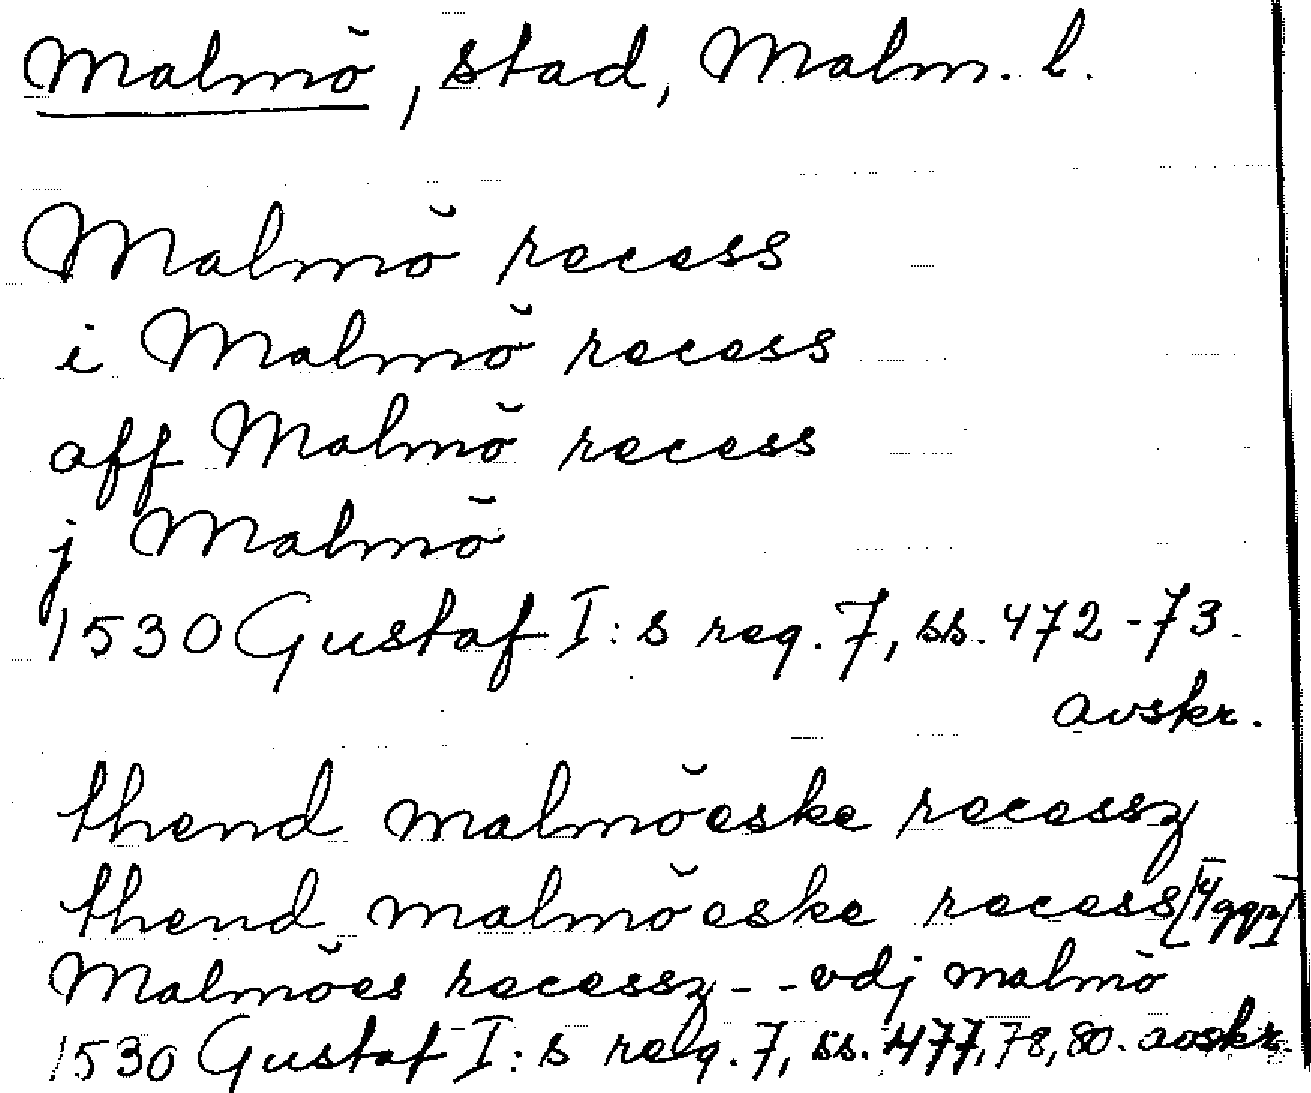 Malmö, stad, Malm. l.
Malmö recess
i Malmö recess
aff Malmö recess
j Malmö
1530 Gustaf I:s reg. 7, ss. 472-73.
avskr.
thend malmöeske recessz
thend malmöeske recess [4 ggr]
Malmöes recessz -- vdj malmö
1530 Gustaf I:s reg. 7, ss. 477, 78, 80. avskr.